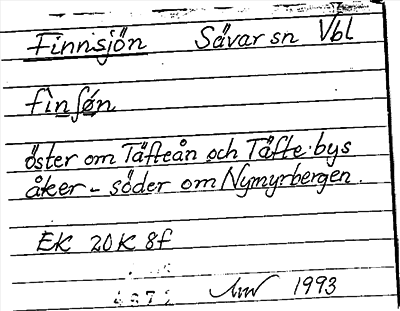 Finnsjön Sävar sn Vbl
fìnʃø̱n
öster om Täfteån och Täfte bys
åker - söder om Nymyrbergen.
EK 20K 8f
1993